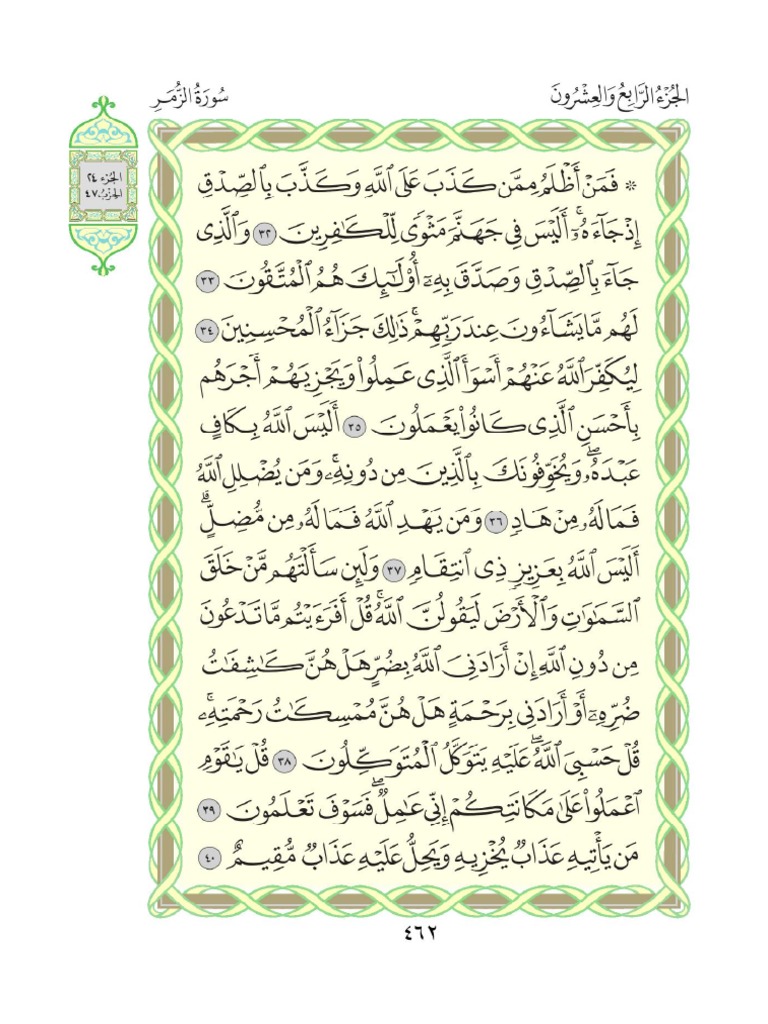 الجُزْءُ الرَّابِعُ وَالعِشْرُونَ
سُورَةُ الزُّمَرِ
الجزء ٢٤
الحزب ٤٧
* فَمَنْ أَظْلَمُ مِمَّن كَذَبَ عَلَى ٱللَّهِ وَكَذَّبَ بِٱلصِّدْقِ
إِذْ جَآءَهُۥٓۚ أَلَيْسَ فِى جَهَنَّمَ مَثْوًى لِّلْكَـٰفِرِينَ ٣٢ وَٱلَّذِى
جَآءَ بِٱلصِّدْقِ وَصَدَّقَ بِهِۦٓ أُو۟لَـٰٓئِكَ هُمُ ٱلْمُتَّقُونَ ٣٣
لَهُم مَّا يَشَآءُونَ عِندَ رَبِّهِمْۚ ذَٰلِكَ جَزَآءُ ٱلْمُحْسِنِينَ ٣٤
لِيُكَفِّرَ ٱللَّهُ عَنْهُمْ أَسْوَأَ ٱلَّذِى عَمِلُوا۟ وَيَجْزِيَهُمْ أَجْرَهُم
بِأَحْسَنِ ٱلَّذِى كَانُوا۟ يَعْمَلُونَ ٣٥ أَلَيْسَ ٱللَّهُ بِكَافٍ
عَبْدَهُۥۖ وَيُخَوِّفُونَكَ بِٱلَّذِينَ مِن دُونِهِۦۚ وَمَن يُضْلِلِ ٱللَّهُ
فَمَا لَهُۥ مِنْ هَادٍ ٣٦ وَمَن يَهْدِ ٱللَّهُ فَمَا لَهُۥ مِن مُّضِلٍّۗ
أَلَيْسَ ٱللَّهُ بِعَزِيزٍ ذِى ٱنتِقَامٍ ٣٧ وَلَئِن سَأَلْتَهُم مَّنْ خَلَقَ
ٱلسَّمَـٰوَٰتِ وَٱلْأَرْضَ لَيَقُولُنَّ ٱللَّهُۚ قُلْ أَفَرَءَيْتُم مَّا تَدْعُونَ
مِن دُونِ ٱللَّهِ إِنْ أَرَادَنِىَ ٱللَّهُ بِضُرٍّ هَلْ هُنَّ كَـٰشِفَـٰتُ
ضُرِّهِۦٓ أَوْ أَرَادَنِى بِرَحْمَةٍ هَلْ هُنَّ مُمْسِكَـٰتُ رَحْمَتِهِۦۚ
قُلْ حَسْبِىَ ٱللَّهُۖ عَلَيْهِ يَتَوَكَّلُ ٱلْمُتَوَكِّلُونَ ٣٨ قُلْ يَـٰقَوْمِ
ٱعْمَلُوا۟ عَلَىٰ مَكَانَتِكُمْ إِنِّى عَـٰمِلٌۖ فَسَوْفَ تَعْلَمُونَ ٣٩
مَن يَأْتِيهِ عَذَابٌ يُخْزِيهِ وَيَحِلُّ عَلَيْهِ عَذَابٌ مُّقِيمٌ ٤٠
٤٦٢